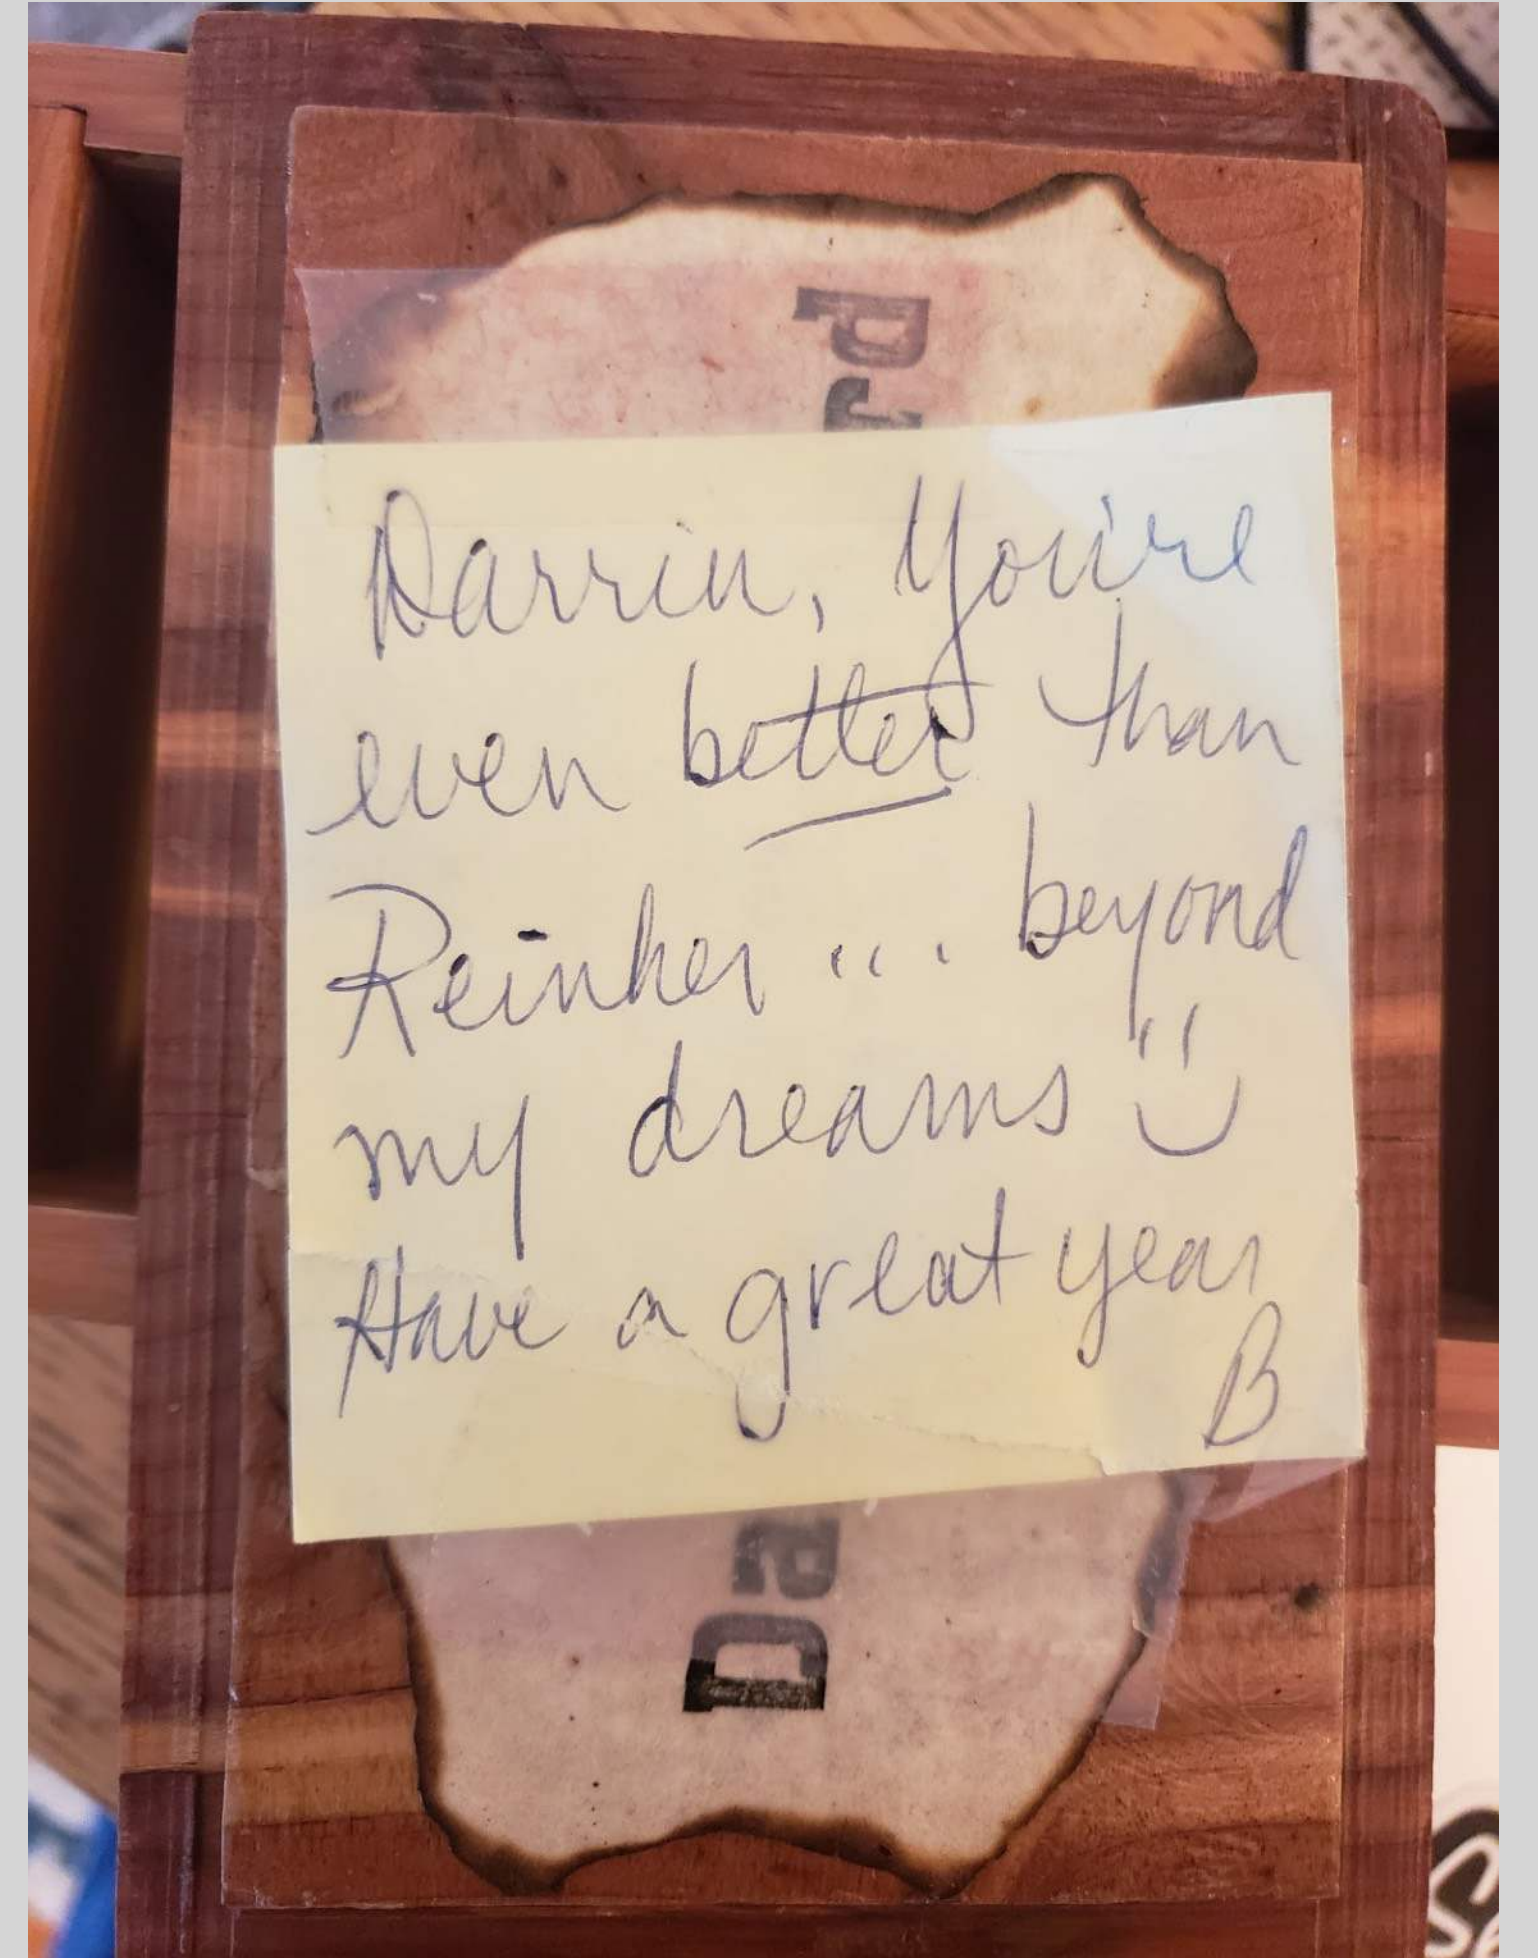 Darrin, You're
even better than
Reinher ... beyond
my dreams
Have a great year
B
Da